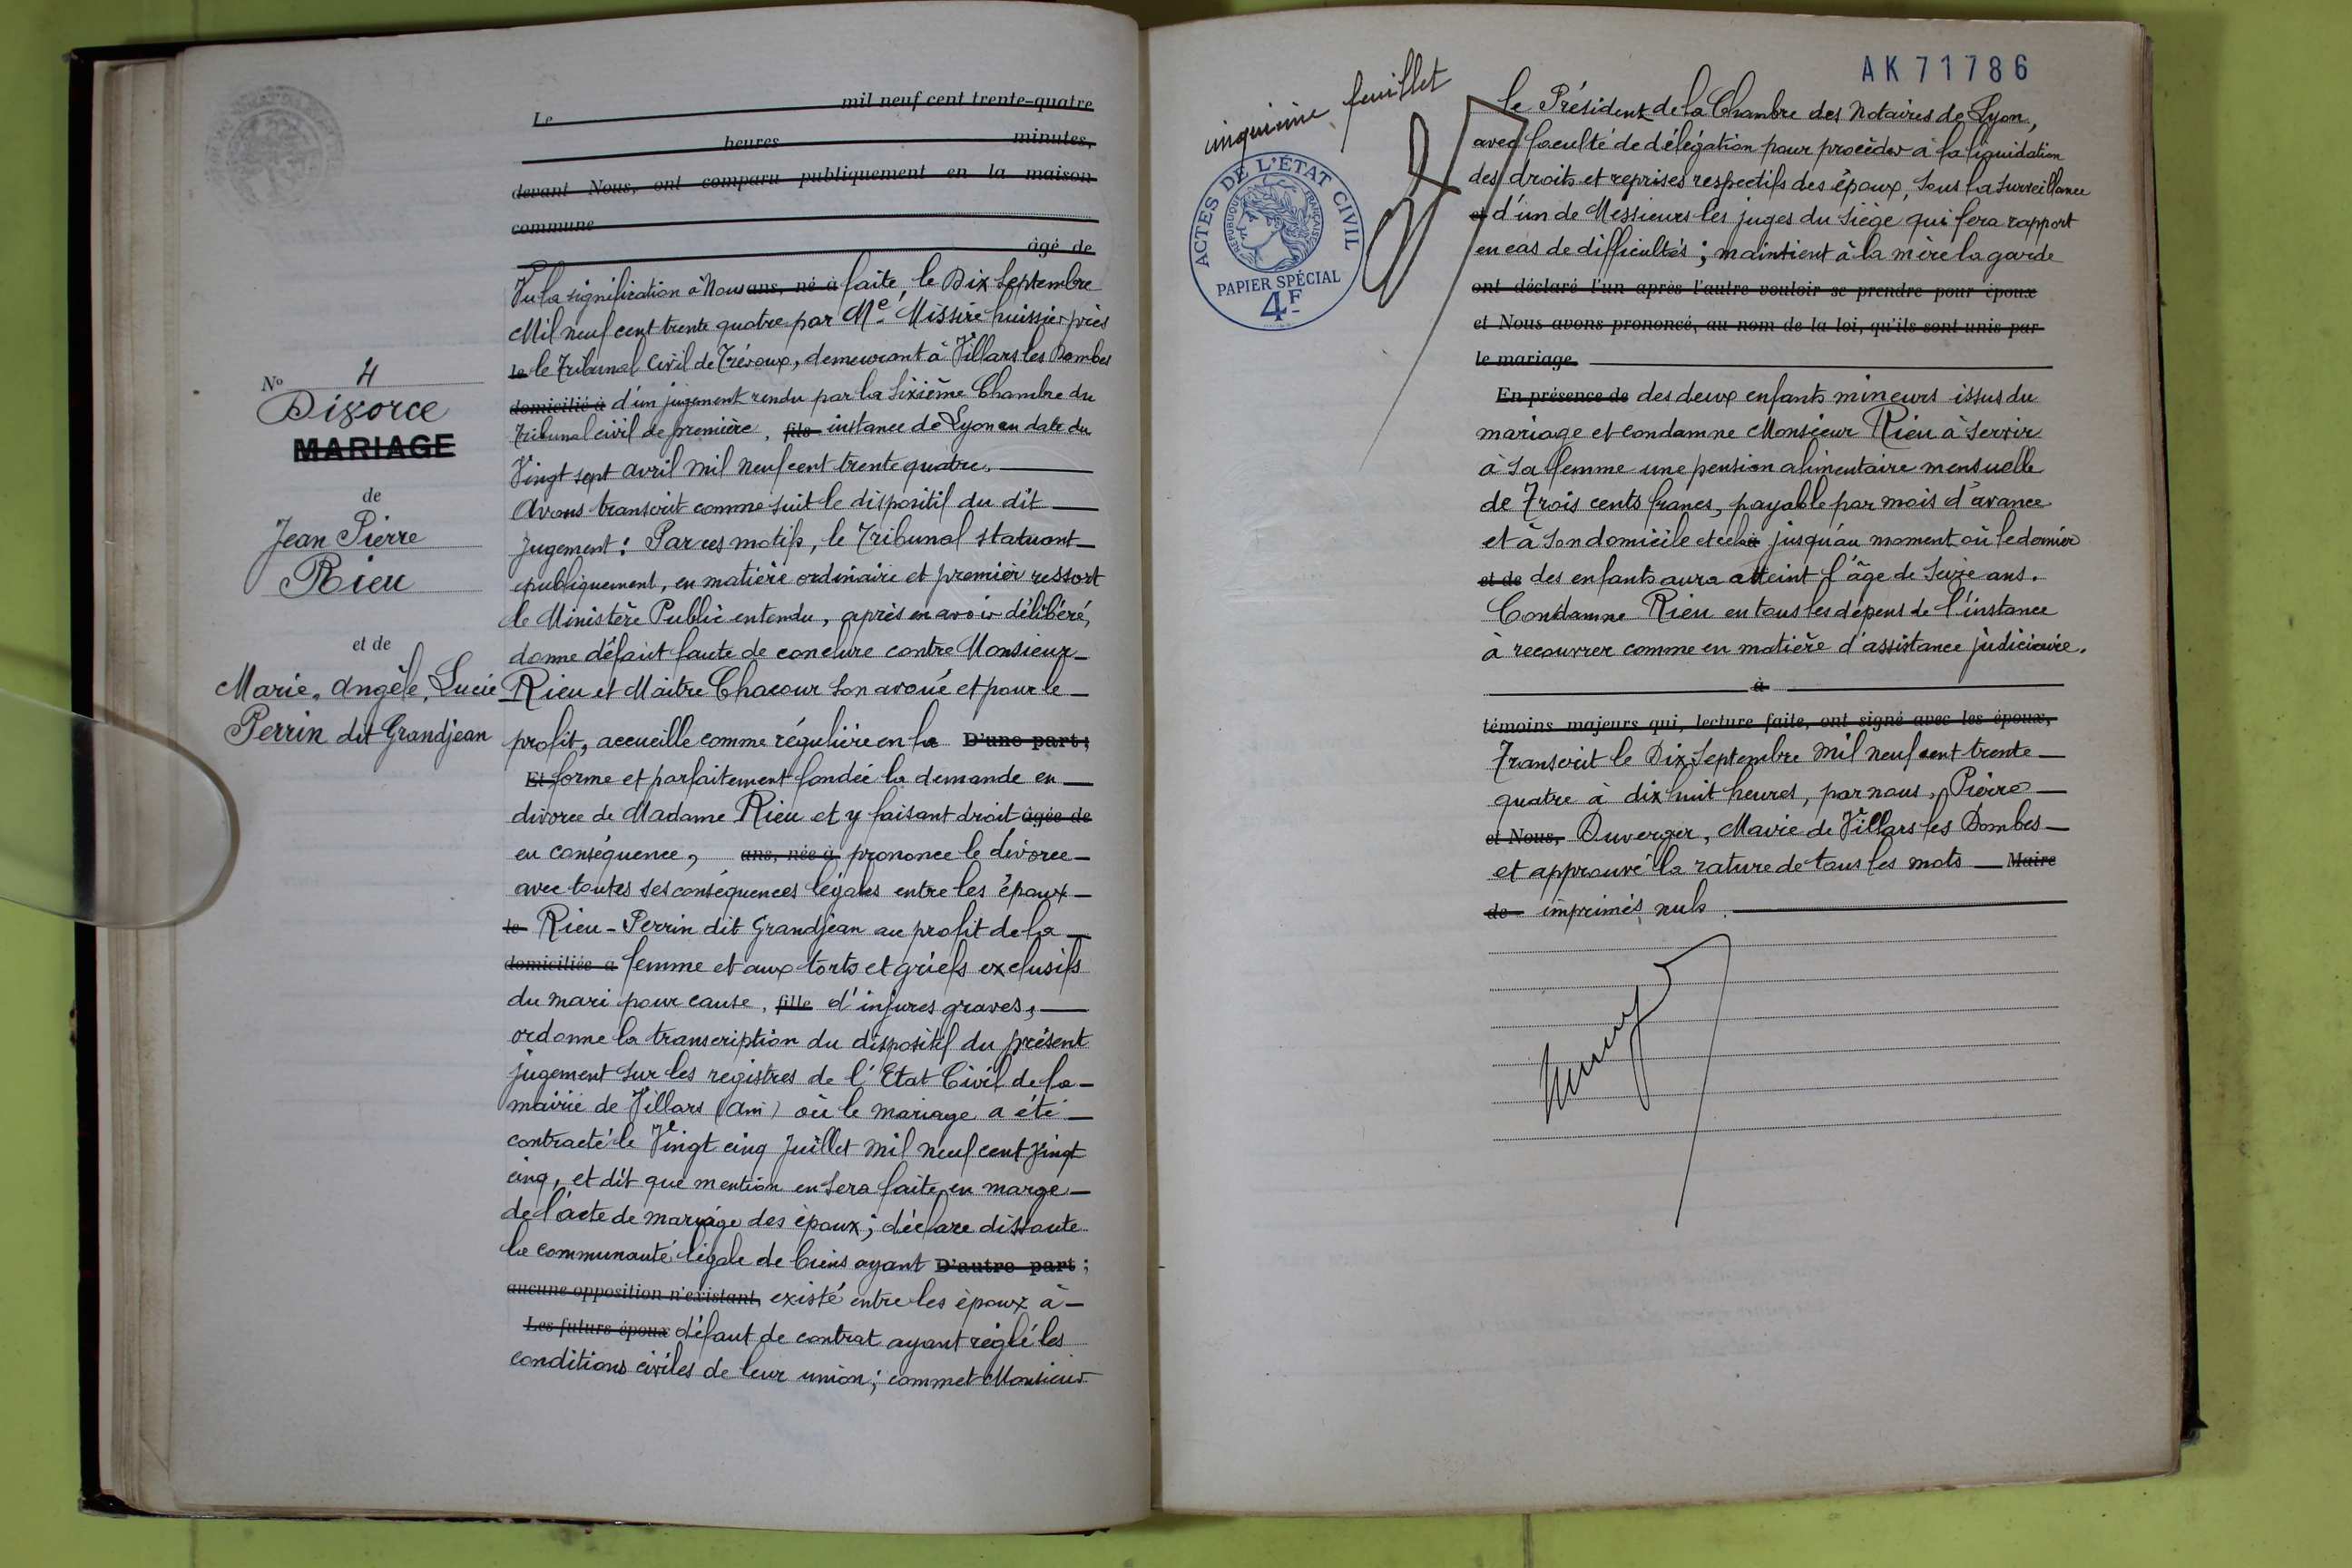 Le mil neuf cent trente-quatre
heures minutes,
devant Nous, ont comparu publiquement en la maison
commune
âgé de
Vu la signification à Nous ans, né à faite, le Dix Septembre
Mil neuf cent trente quatre par Me Missire huissier près
le le Tribunal Civil de Trévoux, demeurant à Villars les Dombes
domicilié à d'un jugement rendu par la Sixième Chambre du
Tribunal civil de première, fils instance de Lyon en date du
Vingt sept avril mil neuf cent trente quatre.
Avons transcrit comme suit le dispositif du dit
Jugement : Par ces motifs, le Tribunal statuant
publiquement, en matière ordinaire et premier ressort
le Ministère Public entendu, après en avoir délibéré,
donne défaut faute de conclure contre Monsieur
Rieu et Maître Chacour son avoué et pour le
profit, accueille comme régulière en la D'une part ;
Et forme et parfaitement fondée la demande en
divorce de Madame Rieu et y faisant droit âgée de
en conséquence, ans, née à prononce le divorce
avec toutes ses conséquences légales entre les époux
le Rieu - Perrin dit Grandjean au profit de la
domiciliée à femme et aux torts et griefs exclusifs
du mari pour cause, fille d'injures graves,
ordonne la transcription du dispositif du présent
jugement sur les registres de l'Etat Civil de la
mairie de Villars (Ain) où le mariage a été
contracté le Vingt cinq Juillet mil neuf cent vingt
cinq, et dit que mention en sera faite en marge
de l'acte de mariage des époux ; déclare dissoute
la communauté légale de biens ayant D'autre part ;
aucune opposition n'existant, existé entre les époux à
Les futurs époux défaut de contrat ayant réglé les
conditions civiles de leur union ; commet Monsieur
No 4
Divorce
MARIAGE
de
Jean Pierre
Rieu
et de
Marie, Angèle, Lucie
Perrin dit Grandjean
AK71786
cinquième feuillet
ACTES DE L'ÉTAT CIVIL
RÉPUBLIQUE FRANÇAISE
PAPIER SPÉCIAL
4F
le Président de la Chambre des Notaires de Lyon,
avec faculté de délégation pour procéder à la liquidation
des droits et reprises respectifs des époux, sous la surveillance
et d'un de Messieurs les juges du Siège qui fera rapport
en cas de difficultés ; maintient à la mère la garde
ont déclaré l'un après l'autre vouloir se prendre pour époux
et Nous avons prononcé, au nom de la loi, qu'ils sont unis par
le mariage.
En présence de des deux enfants mineurs issus du
mariage et condamne Monsieur Rieu à servir
à sa femme une pension alimentaire mensuelle
de Trois cents francs, payable par mois d'avance
et à son domicile et cela jusqu'au moment où le dernier
et de des enfants aura atteint l'âge de Seize ans.
Condamne Rieu en tous les dépens de l'instance
à recouvrer comme en matière d'assistance judiciaire.
à
témoins majeurs qui, lecture faite, ont signé avec les époux,
Transcrit le Dix Septembre mil neuf cent trente
quatre à dix huit heures, par nous, Pierre
et Nous, Duverger, Maire de Villars les Dombes
et approuvé la rature de tous les mots Maire
de imprimés nuls.